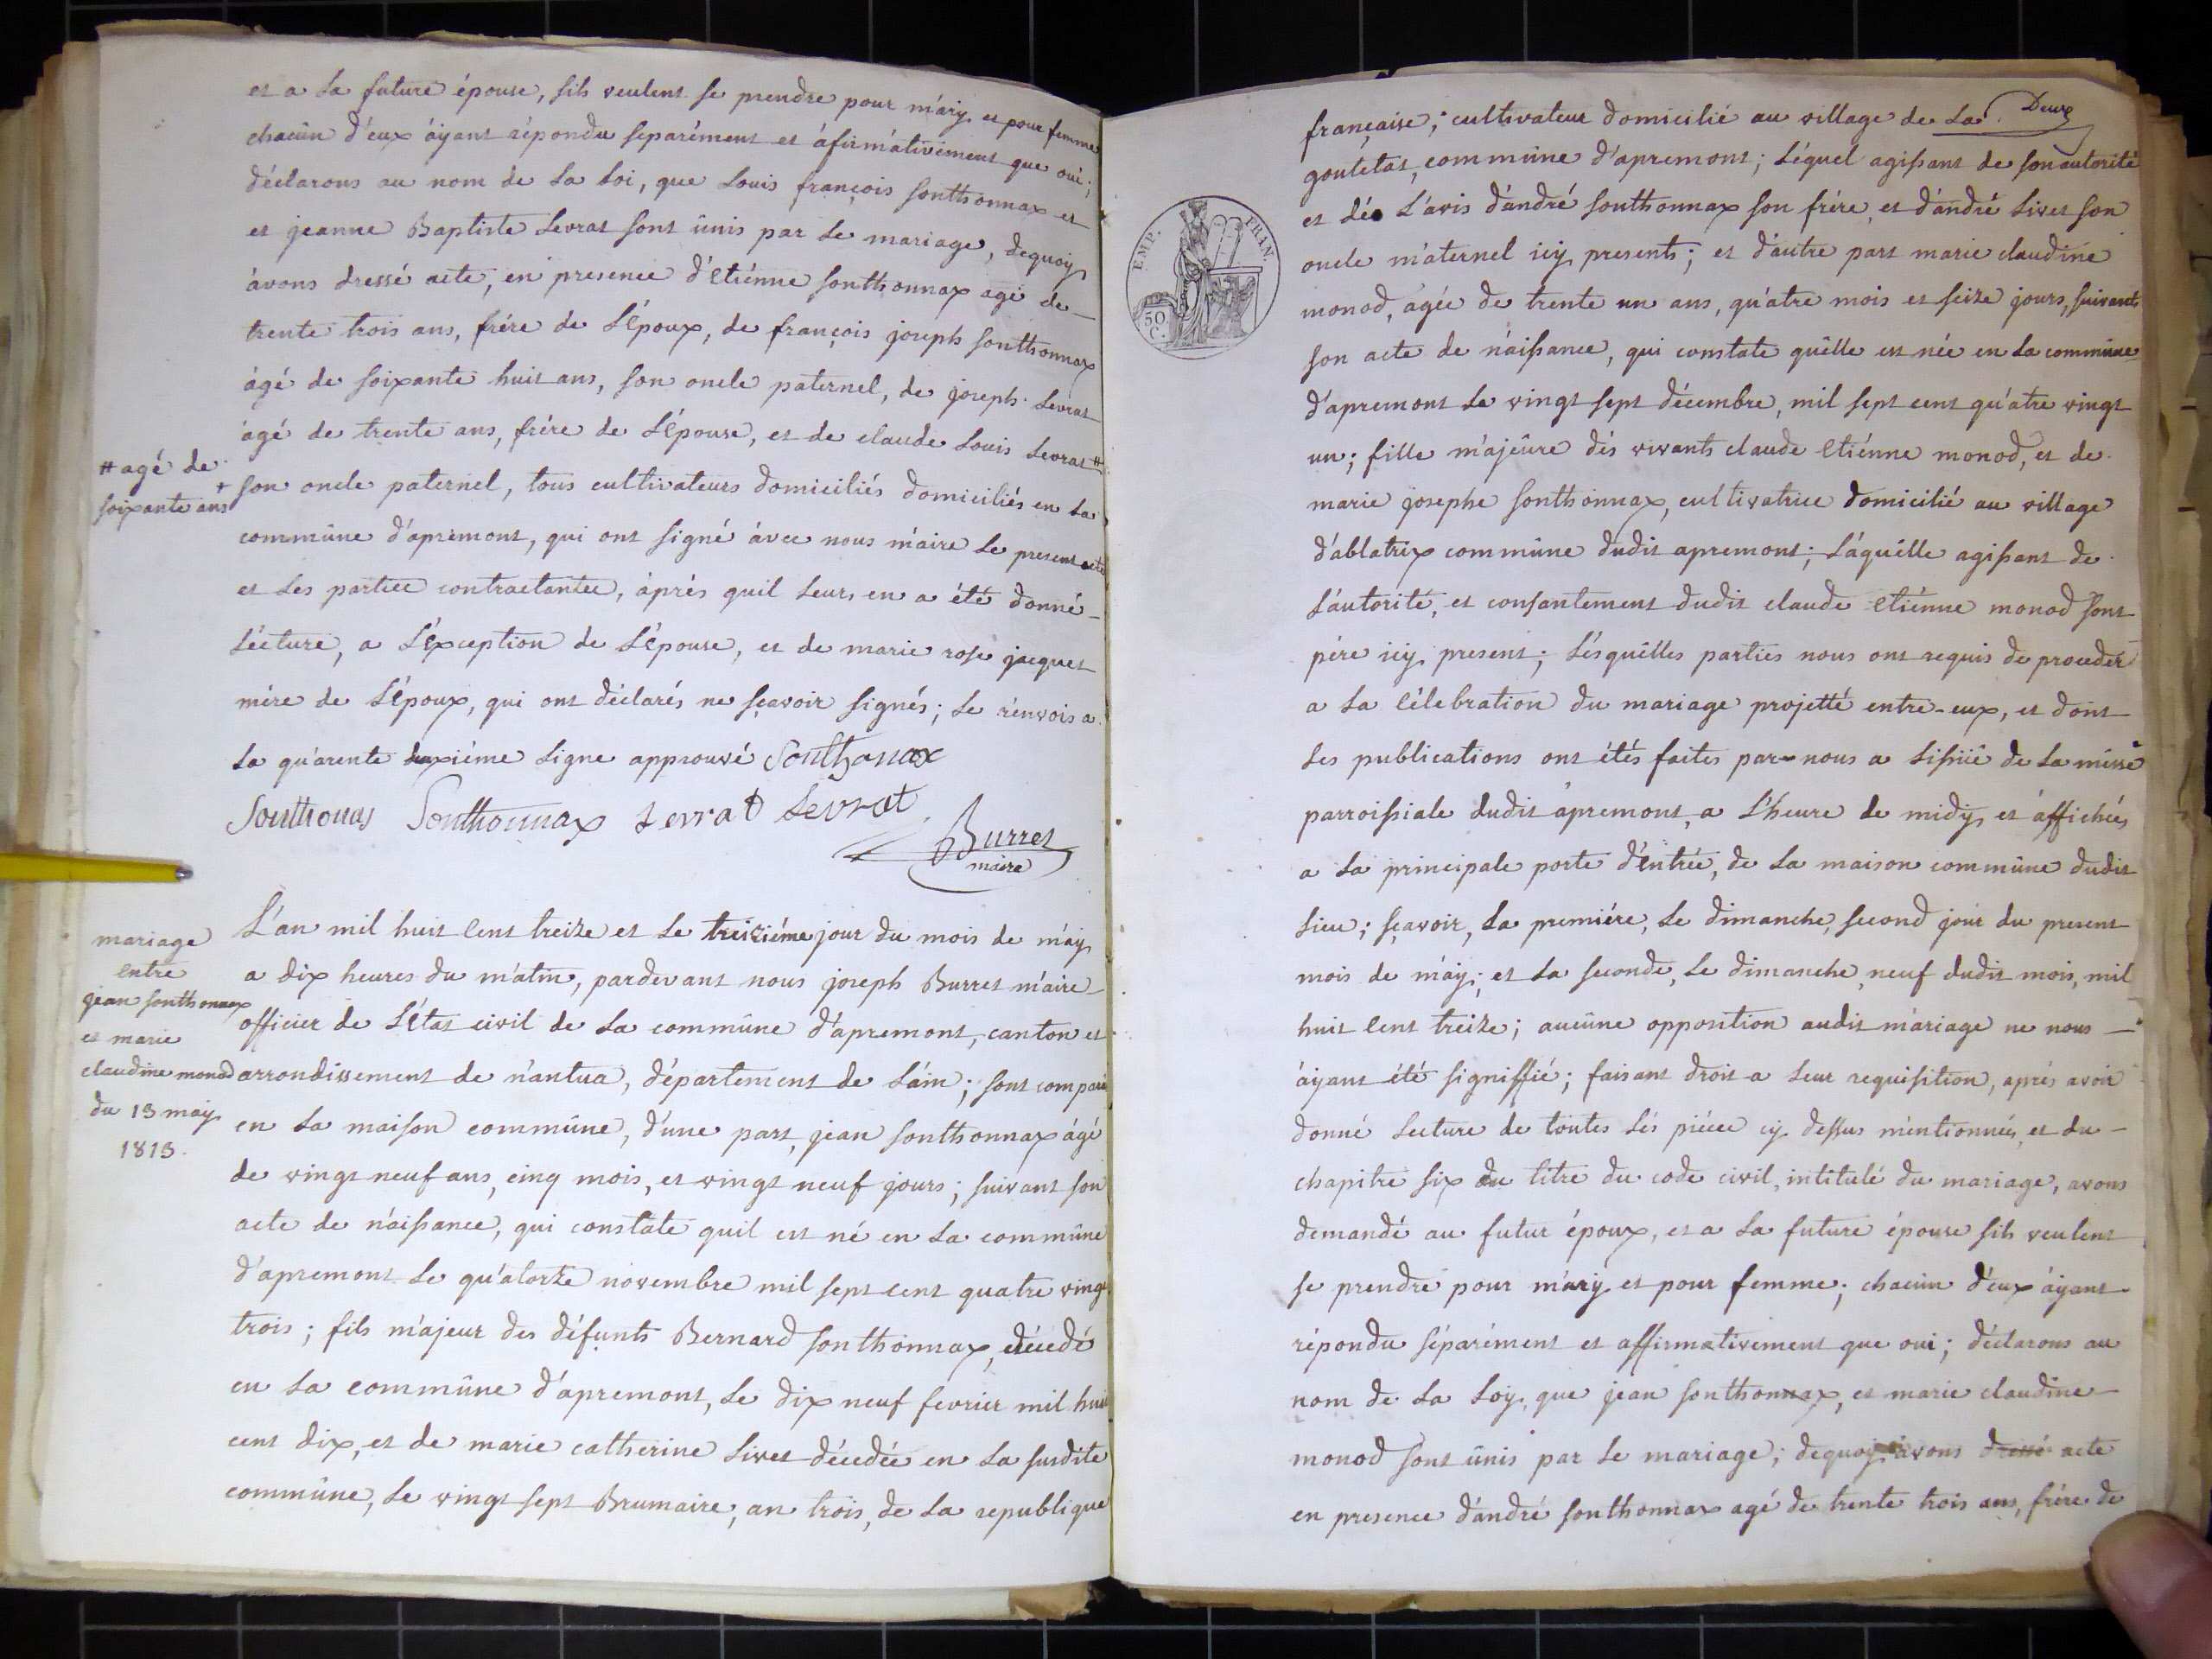 et a la future épouse, sils veulent se prendre pour m'ary et pour femme
chacûn d'eux áyant répondu separément et áfirmátivément que oui;
déclarons au nom de la loi, que Louis françois sonthonnax et
et jeanne Baptiste Levrat sont ûnis par le mariage, dequoy
ávons dressé acte, en presence d'Etiénne sonthonnax agé de
trente trois ans, frére de L'Epoux, de françois joseph sonthonnax
ágé de soixante huit ans, son oncle paternel, de joseph Levrat
ágé de trente ans, frére de L'Epouse, et de claude Louis Levrat #
# agé de
soixante ans +
son oncle paternel, tous cultivateurs domiciliés domiciliés en la
commûne d'apremont, qui ont signé ávec nous m'aire le present acte
et les parties contractantes, áprés quil leurs en a été donné
Lécture, a L'Exception de L'Epouse, et de marie rose jacquet
mére de L'Epoux, qui ont déclarés ne sçavoir signés; le rénvois a
la qu'arente deuxiéme ligne approuvé Sonthonax
Sonthonas Sonthonnax Levrat Levrat
Burret
maire
mariage
entre
jean sonthonnax
et marie
claudine monod
du 13 may
1813.
L'an mil huit Cent treize et le treiziéme jour du mois de m'ay
a dix heures du m'atin, pardevant nous joseph Burret m'aire
officier de L'Etat civil de la commûne d'apremont, canton et
arrondissement de n'antua, département de L'áin; sont comparu
en la maison commûne, d'une part, jean sonthonnax ágé
de vingt neuf ans, cinq mois, et vingt neuf jours; suivant son
acte de n'aissance, qui constate quil est né en la commûne
d'apremont le qu'atorze novembre mil sept cent quatre vingt
trois; fils m'ajeur des défunts Bernard sonthonnax, décédé
en la commûne d'apremont, le dix neuf fevrier mil huit
cent dix, et de marie catherine Livet décédée en la susdite
commûne, le vingt sept Brumaire, an trois, de la republique
Deux
française; cultivateur domicilié au village de la
goutetat, commûne d'apremont; Léquel agissant de son autorité
et dé L'ávis d'ándré sonthonnax son frére, et d'ándré Livet son
oncle m'aternel icy presents; et d'áutre part marie claudine
monod, ágée de trente un ans, qu'atre mois et seize jours, suivant
son acte de n'aissance, qui constate qu'elle est née en la commûne
d'apremont le vingt sept décembre, mil sept cent qu'atre vingt
un; fille m'ajeûre dés vivants claude Etiénne monod, et de
marie josephe sonthonnax, cultivatrice domicilié au village
d'ablatrix commûne dudit apremont; Láquélle agissant de
L'áutorité, et consantement dudit claude Etiénne monod sont
pére icy present; Lésquélles parties nous ont requis de procedér
a la Célebration du mariage projetté entre-eux, et dont
les publications ont étés faites par nous a Lissüe de la mésse
parroissiale dudit apremont, a L'heure de midy, et áffichées
a la principale porte d'éntrée, de la maison commûne dudit
lieu; sçavoir, la premiére, le dimanche, second jour du present
mois de m'ay; et la seconde, le dimanche, neuf dudit mois, mil
huit Cent treize; aucûne opposition audit m'ariage ne nous
áyant été signiffié; faisant droit a leur requisition, aprés avoir
donné Lecture de toutes Lés piéces cy dessus méntionnées, et du
chapitre six du titre du code civil, intitulé du mariage, avons
demandé au futur époux, et a la future épouse sils veulent
se prendre pour m'ary et pour femme; chacûn d'eux áyant
répondu séparément et affirmativement que oui; déclarons au
nom de la Loy, que jean sonthonnax, et marie claudine
monod sont ûnis par le mariage; dequoy ávons dressé acte
en presence d'ándré sonthonnax agé de trente trois ans, frére de
EMP. FRAN.
50
C.